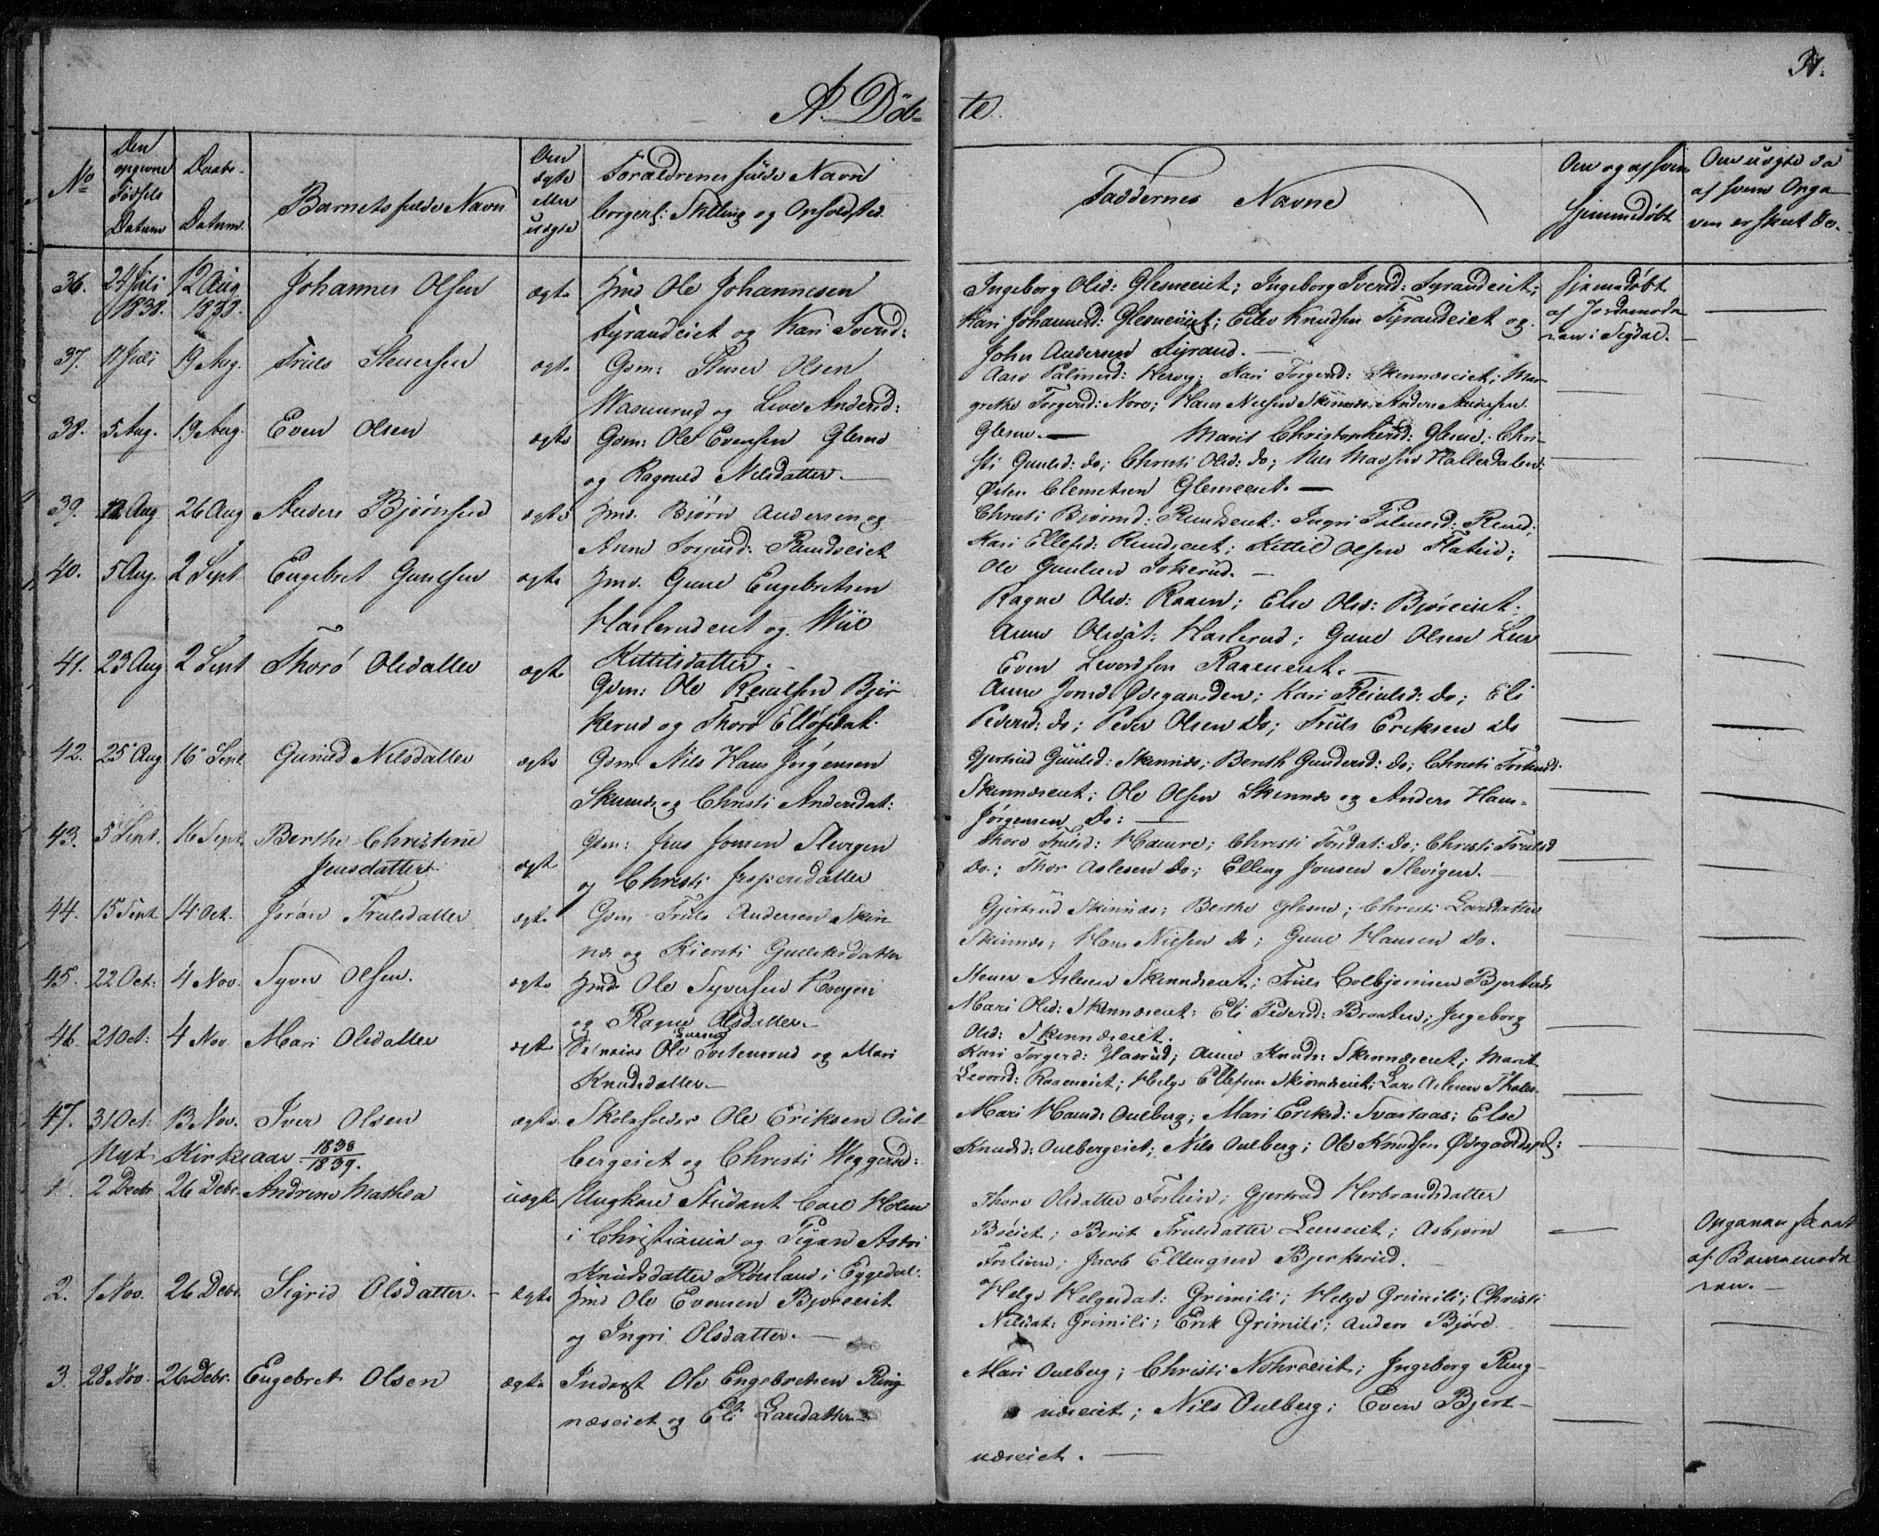 A. Døb-
te.
No
Den opgivne Fødsels Datum
Daabs-Datum.
Barnets fulde Navn
Om ægte eller uægte
Forældrenes fulde Navn borgerl: Stilling og Opholdsted.
Faddernes Navne
Om og af hvem hjemmedøbt
Om uægte da af hvem Opga-
ven er skeet &c.
36. 24 Juli 1838. 12 Aug 1838. Johannes Olsen ægte Jmd Ole Johannesen
Tyrandeiet og Kari Iversd:
Ingeborg Olsd: Glesneeiet; Ingeborg Iversd: Tyrandeiet;
Kari Johannesd: Glesneeiet; Eilev Knudsen Tyrandeiet og
John Andersen Tyrand. —
Hjemmedøbt
af Jordemode-
ren i Sigdal.
37. 11 Juli 19 Aug. Truls Stenersen ægte Gsm: Stener Olsen
og Live Andersd:
Kari Torgersd: Skinnæseiet; Mar-
grethe Torgersd: Nore; Hans Nielsen Skinnæs; Anders Andersen
Glesne. —
38. 5 Aug. 19 Aug. Even Olsen ægte Gsm: Ole Evensen Glesne
og Ragnild Nilsdatter. —
Marit Christophersd: Glesne; Chri-
sti Gulsd: do; Christi Olsd: do; Nils Madsen Hallesdalen
Østen Clemetsen Glesneeiet. —
39. 12 Aug 26 Aug Anders Bjørnsen ægte Jmd. Bjørn Andersen og
Anne
Christi Bjørnsd: Ingri
Kari Ellefsd: Kittil Olsen Flatin;
Ole Gulsen
40. 5 Aug. 2 Sept Engebret Gunelsen ægte Jmd. Gune Engebretsen
Haslerudeiet og
Kittilsdatter. —
Ragne Olsd: Raaen; Else Olsd: Bjøreeiet;
Anne Olsdat: Haslerud; Gune Olsen Lien
Even Levordsen Raaeneiet. —
41. 23 Aug 2 Sept Thorø Olsdatter ægte Gsm: Ole Bjør-
kerud og Thorø Ellefsdat.
Anne Jonsd: Ødegaarden; Kari do; Eli
Pedersd: do; Peder Olsen do; Truls Eriksen do
42. 25 Aug 16 Sept Gunild Nilsdatter ægte Gsm Nils Hans Jørgensen
Skinnæs og Christi Andersdat:
Gjertrud Gulsd: Skinnæs; Berith Gundersd: do; Christi
Skinnæseiet; Ole Olsen Skinnæs og Anders Hans-
Jørgensen do: —
43. 5 Sept. 16 Sept. Berthe Christine
Jensdatter ægte Gsm: Jens Jonsen Slevigen
og Christi Jespersdatter
Thore Trulsd: Haavre; Christi do; Christi Trulsd
do; Thor Aslesen do; Elling Jonsen Slevigen. —
44. 15 Sept 14 Oct. Jøran Trulsdatter ægte Gsm Truls Andersen Skin-
næs og Kiersti Gulliksdatter
Gjertrud Skinnæs; Berthe Glesne; Christi Larsdatter
Skinnæs; Hans Nielsen do; Gune Hansen do.
45. 22 Oct: 4 Nov. Syver Olsen. ægte Jmd Ole Syversen Haugen
og Ragne Olsdatter. —
Stener Aslesen Skinnæseiet; Truls Colbjørnsen
Mari Olsd: Skinnæseiet; Eli Pedersd: Braaten; Ingeborg
Olsd: Skinnæseiet.
46. 21 Oct: 4 Nov Mari Olsdatter ægte Ole Iversen Tostensrud og Mari
Knudsdatter. —
Kari Torgersd: Anne Knuds: Skinnæseiet; Marit
Levorsd: Raaeneiet; Helge Ellefsen Skinnæseiet; Lars Aslesen
47. 31 Oct: 13 Nov. Iver Olsen ægte Skoleholder Ole Eriksen Oul-
bergeiet og Christi
Mari Hansd: Oulberg; Mari Eriksd: Svartaas; Else
Knudsd: Oulbergeiet; Nils Oulberg; Ole Knudsen
Nyt Kirkeaar 1838/1839.
1. 2 Decbr 26 Debr. Andrine Mathea uægte Ungkarl Student Carl Holm
i Christiania og Pigen Astri
Knudsdatter i Eggedal.
Thore Olsdatter Foslien; Gjertrud Herbrandsdatter
Bøeiet; Berit Trulsdatter Asbjørn
Foslien; Jacob Ellingsen Bjerkerud.
Opgaven skeet
af Barnemode-
ren. —
2. 1 Nov. 26 Debr. Sigrid Olsdatter. — ægte Jmd Ole Evensen Bjøreeiet
og Ingri Olsdatter. —
Helge Helgesdat: Grimeli; Helge Grimeli; Christi
Nilsdat: Grimeli; Erik Grimeli; Anders Bjøre.
3. 28 Nov. 26 Debr. Engebret Olsen ægte Inderst Ole Engebretsen Ring-
næseiet og Eli Larsdatter. —
Mari Oulberg; Christi Nohreeiet; Ingeborg Ring-
næseiet; Nils Oulberg; Even Bjert-
næseiet. —